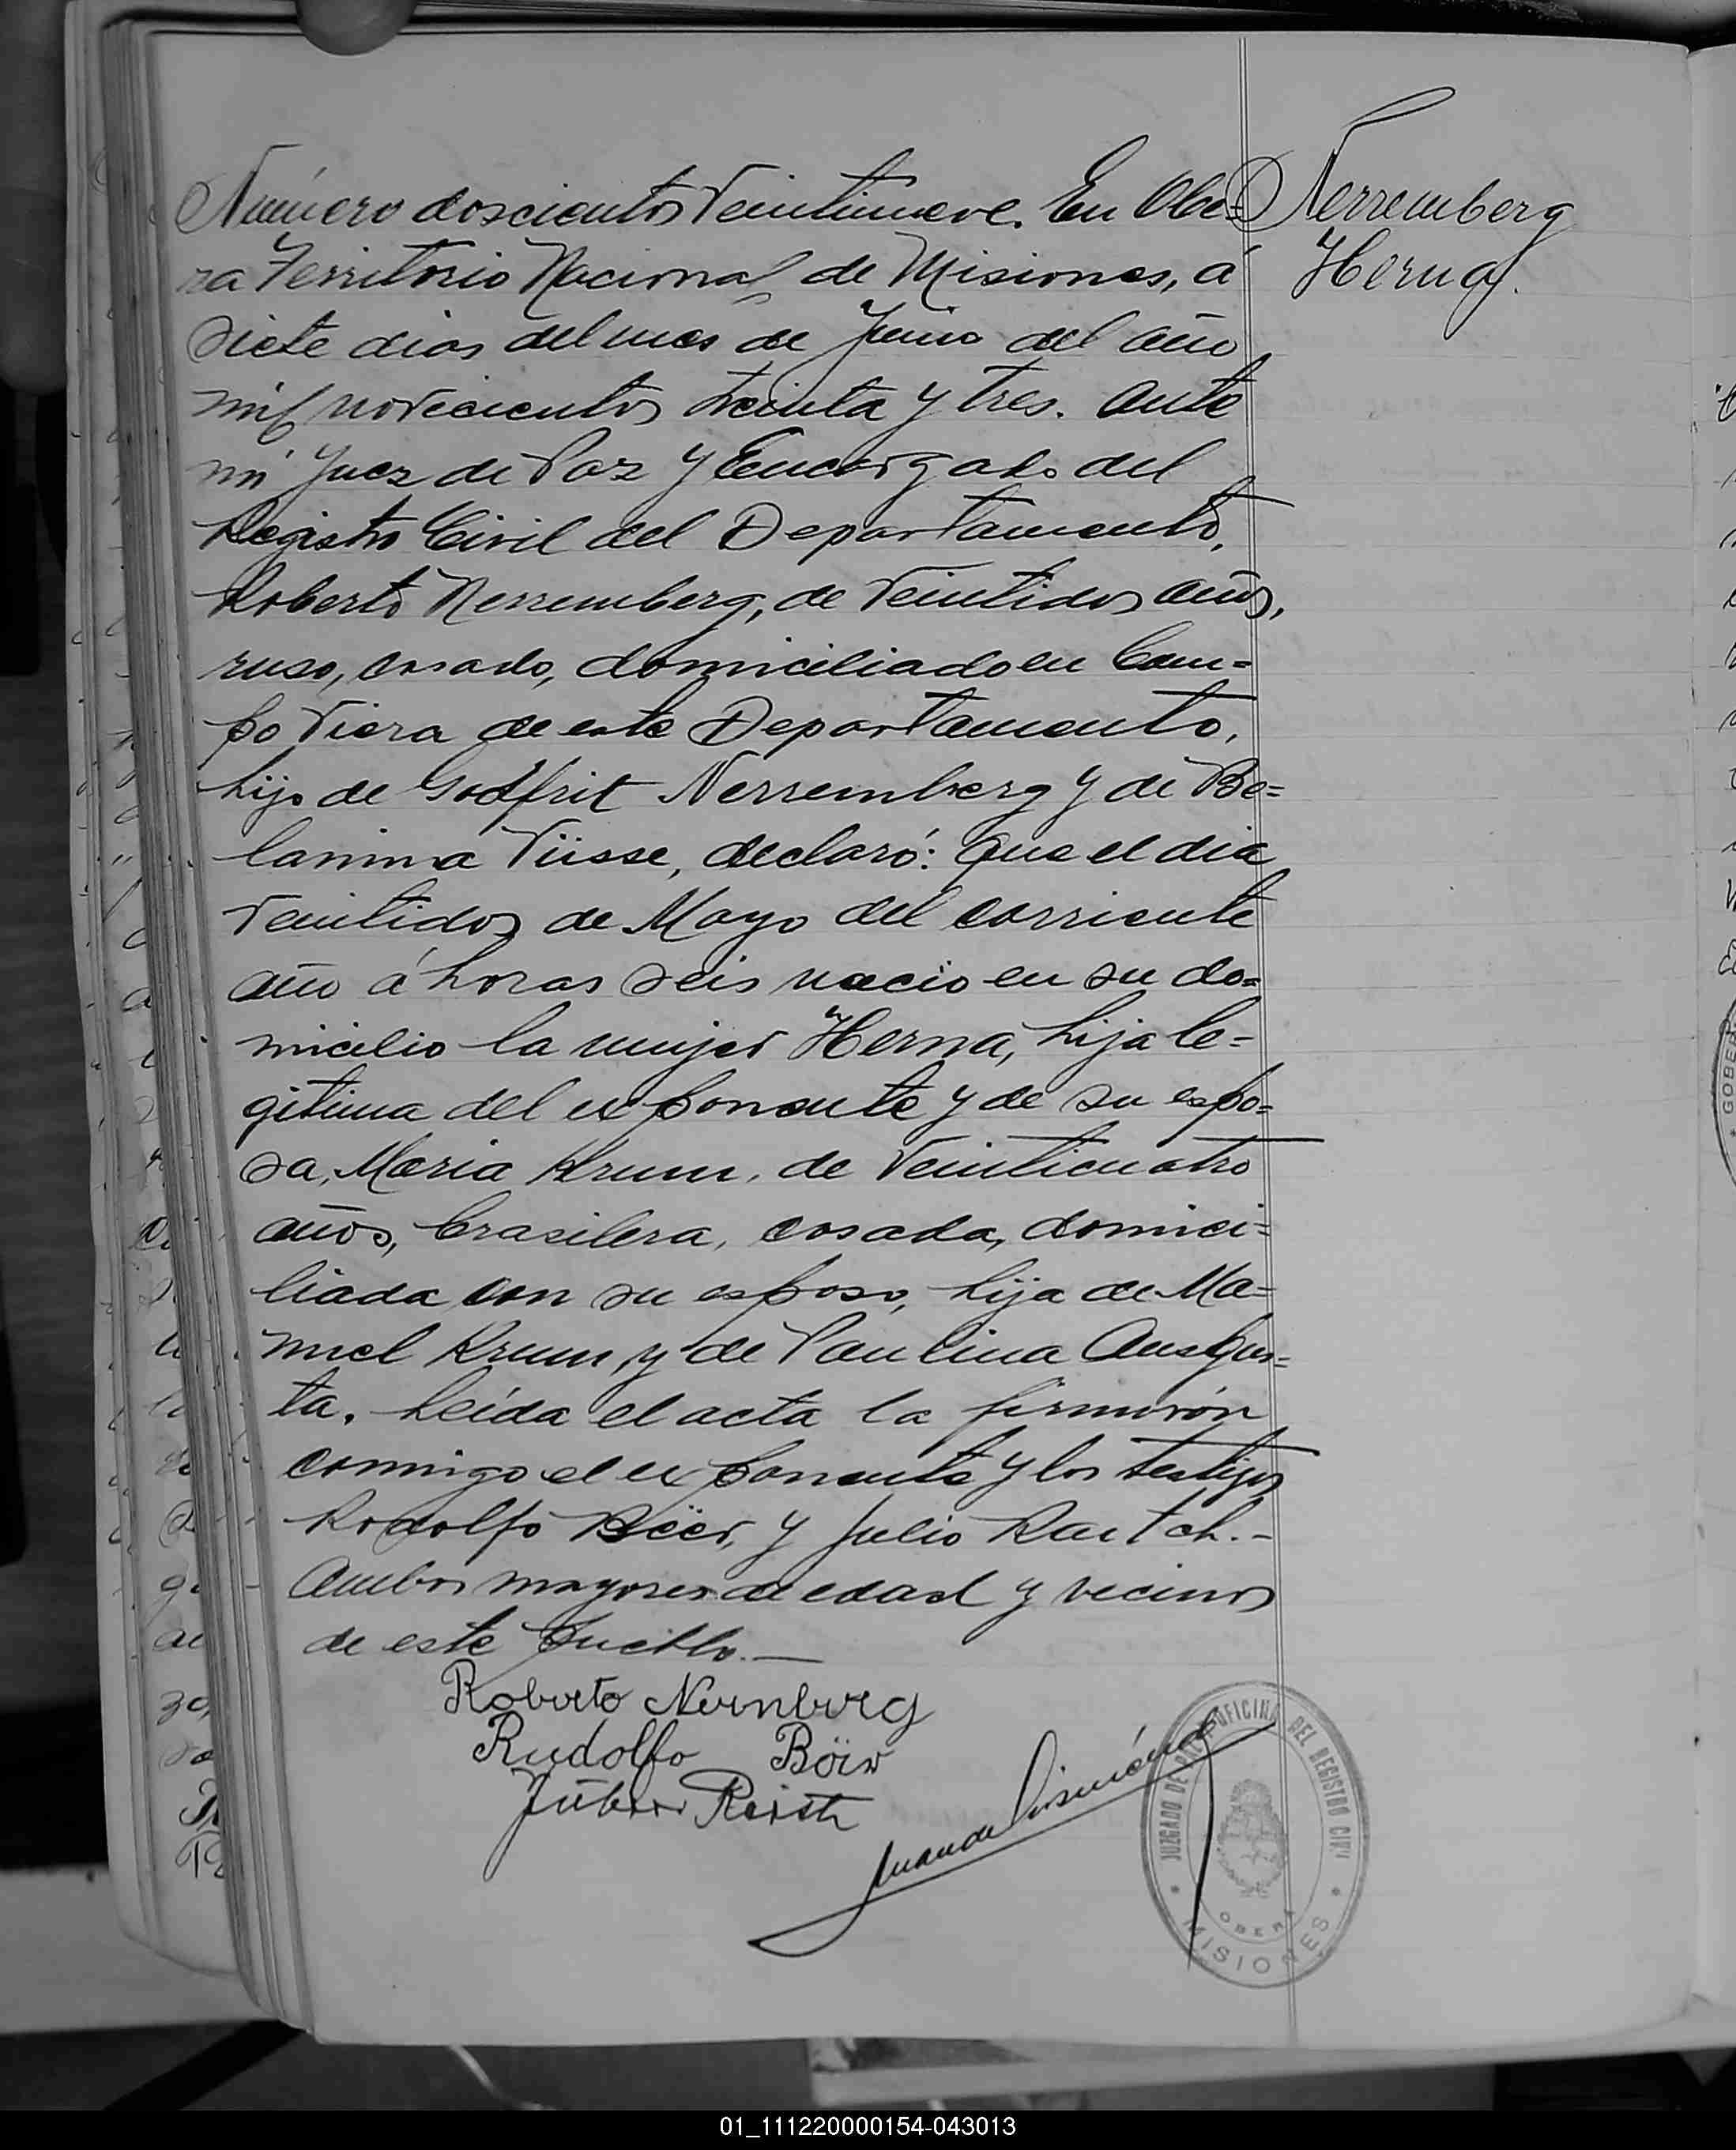 Número doscientos veintinueve. En Obe=
ra Territorio Nacional de Misiones, á
siete dias del mes de Junio del año
mil novecientos treinta y tres. Ante
mi Juez de Paz y Encargado del
Registro Civil del Departamento,
Roberto Nerremberg, de veintidos años,
ruso, casado, domiciliado en Cam=
po Viera de este Departamento,
hijo de Godfrit Nerremberg y de Be=
lamina Tüsse, declaró: Que el dia
veintidos de Mayo del corriente
año á horas seis nacio en su do=
micilio la mujer Herna, hija le=
gitima del exponente y de su espo=
sa, Maria Krum, de veinticuatro
años, brasilera, casada, domici=
liada con su esposo, hija de Ma=
nuel Krum, y de Paulina Ausgus=
ta. Leída el acta la firmarón
conmigo el exponente y los testigos
Rodolfo Böer, y Julio Raitch.-
Ambos mayores de edad y vecinos
de este pueblo.—
Roberto Nernberg
Rudolfo Böir
Reisch
Nerremberg
Herna.
JUZGADO DE PAZ OFICINA DEL REGISTRO CIVIL
OBERA
MISIONES
01_111220000154-043013